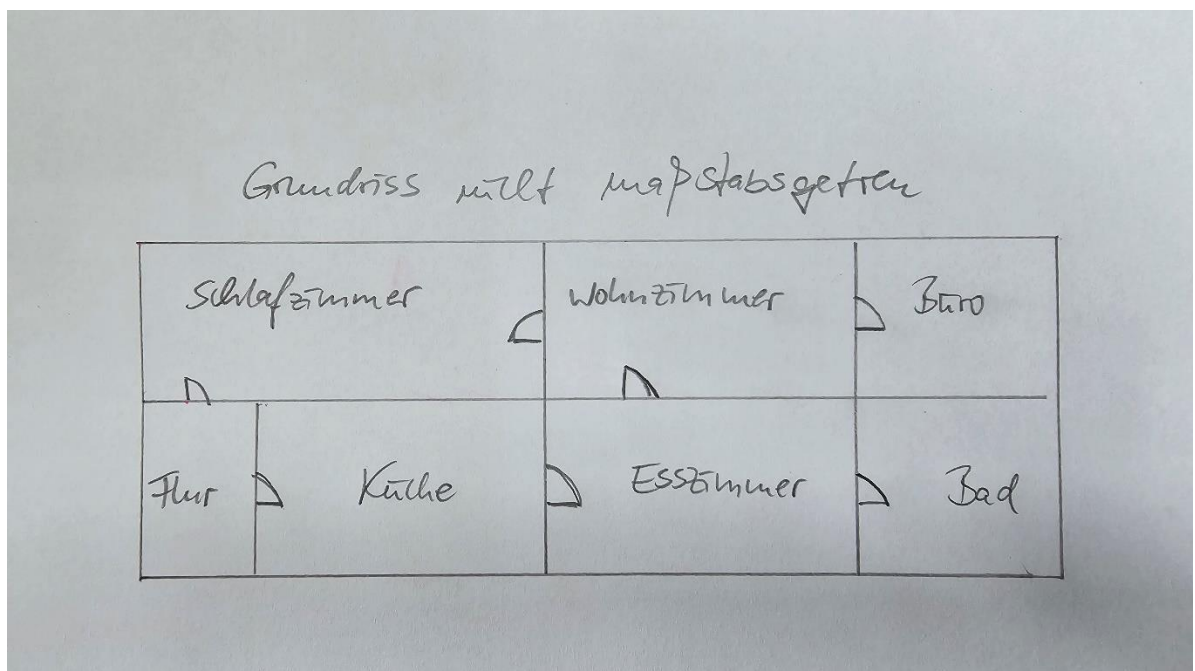 Grundriss nicht maßstabsgetreu
Schlafzimmer
Wohnzimmer
Büro
Flur
Küche
Esszimmer
Bad